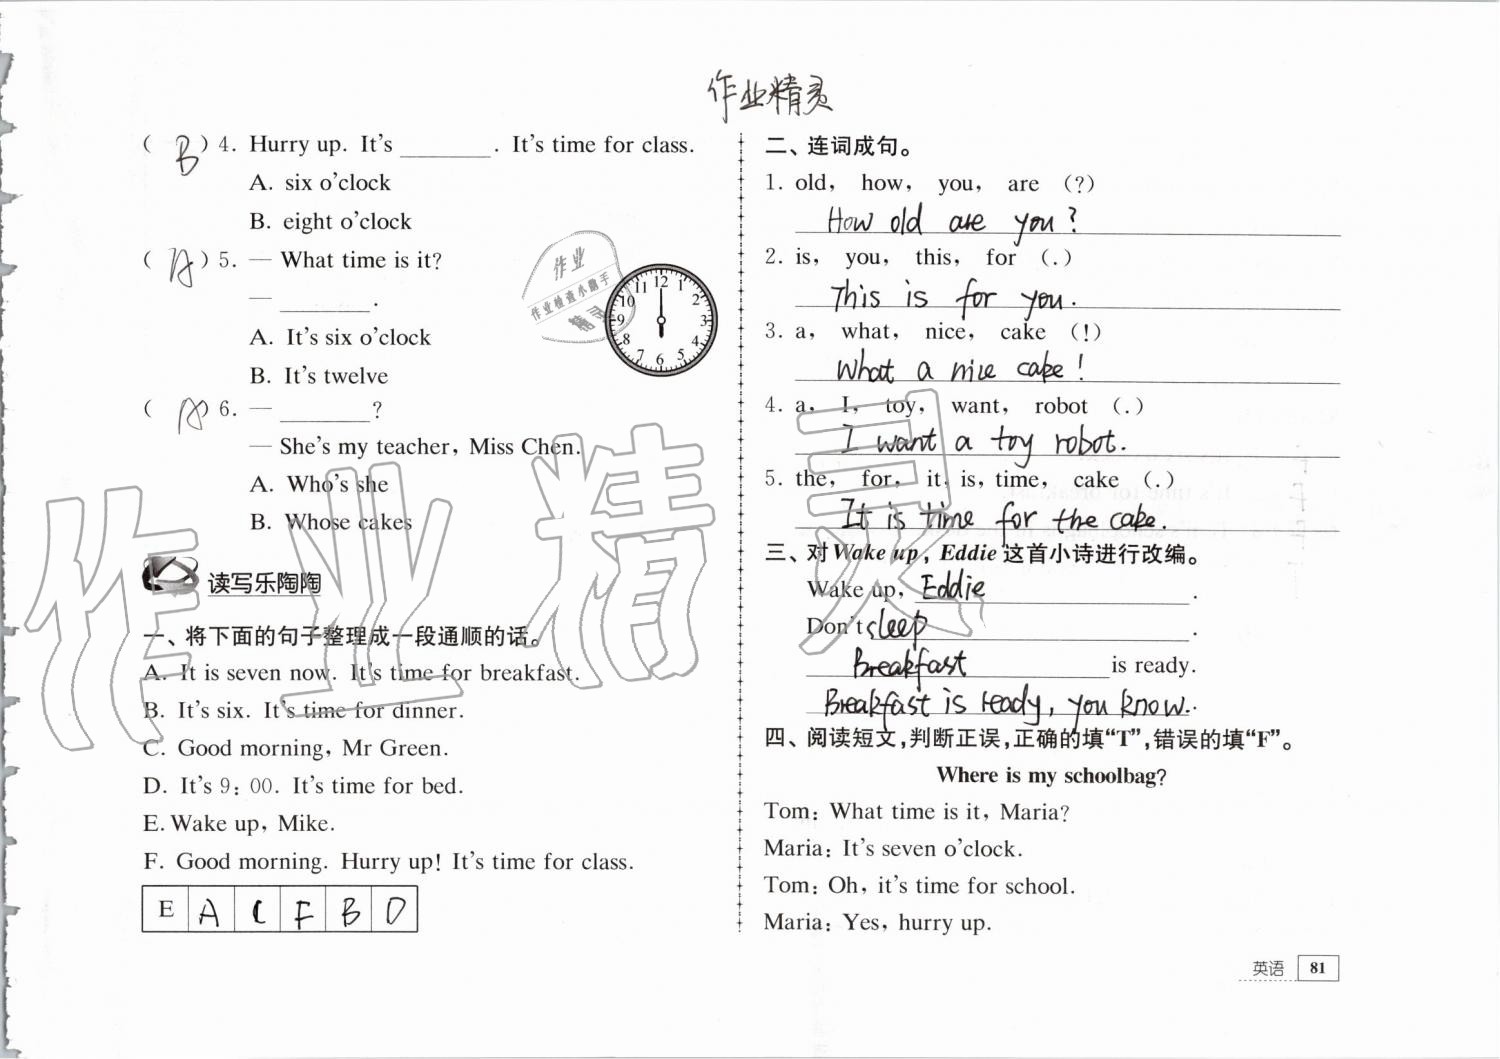 作业精灵
( B ) 4. Hurry up. It's ________. It's time for class.
A. six o'clock
B. eight o'clock
( A ) 5. — What time is it?
— ________.
A. It's six o'clock
B. It's twelve
( A ) 6. — ________?
— She's my teacher, Miss Chen.
A. Who's she
B. Whose cakes
读写乐陶陶
一、将下面的句子整理成一段通顺的话。
A. It is seven now. It's time for breakfast.
B. It's six. It's time for dinner.
C. Good morning, Mr Green.
D. It's 9:00. It's time for bed.
E. Wake up, Mike.
F. Good morning. Hurry up! It's time for class.
E A C F B D
作业
作业检查小助手
精灵
12 1 2 3 4 5 6 7 8 9 10 11
二、连词成句。
1. old, how, you, are (?)
How old are you?
2. is, you, this, for (.)
This is for you.
3. a, what, nice, cake (!)
What a nice cake!
4. a, I, toy, want, robot (.)
I want a toy robot.
5. the, for, it, is, time, cake (.)
It is time for the cake.
三、对Wake up, Eddie这首小诗进行改编。
Wake up, Eddie.
Don't sleep.
Breakfast is ready.
Breakfast is ready, you know.
四、阅读短文,判断正误,正确的填“T”,错误的填“F”。
Where is my schoolbag?
Tom: What time is it, Maria?
Maria: It's seven o'clock.
Tom: Oh, it's time for school.
Maria: Yes, hurry up.
英语 81
作业精灵